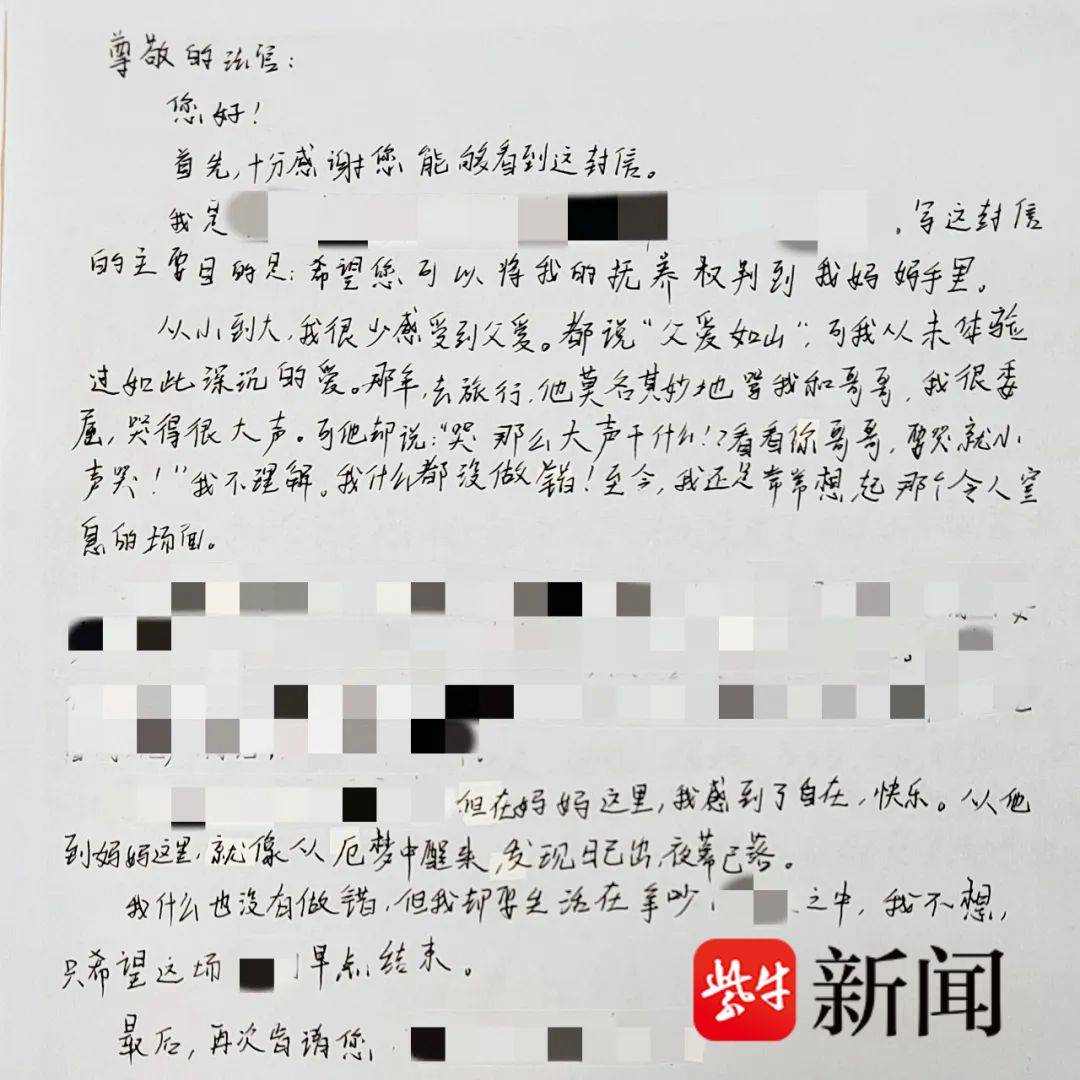 尊敬的法官：
您好！
首先，十分感谢您能够看到这封信。
我是 ，写这封信
的主要目的是：希望您可以将我的抚养权判到我妈妈手里。
从小到大，我很少感受到父爱。都说“父爱如山”，可我从未体验
过如此深沉的爱。那年，去旅行，他莫名其妙地骂我和哥哥，我很委
屈，哭得很大声。可他却说：“哭那么大声干什么！？看看你哥哥，要哭就小
声哭！”我不理解。我什么都没做错！至今，我还是常常想起那个令人窒
息的场面。
但在妈妈这里，我感到了自在，快乐。从他
到妈妈这里，就像从厄梦中醒来，发现日已出，夜幕已落。
我什么也没有做错，但我却要生活在争吵 之中，我不想，
只希望这场 早点结束。
最后，再次 请您
紫牛 新闻